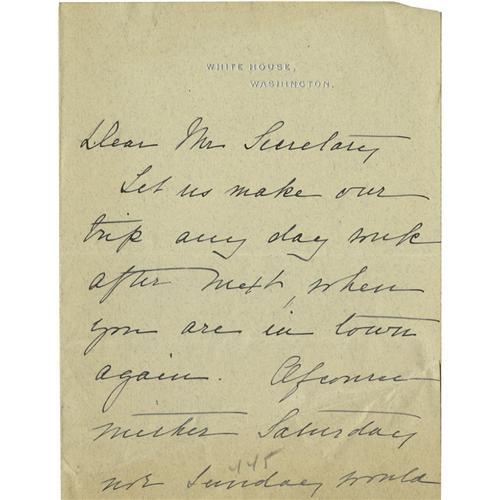 WHITE HOUSE,
WASHINGTON.
Dear Mr Secretary
Let us make our
trip any day week
after next, when
you are in town
again. Of course
neither Saturday
nor Sunday would
445